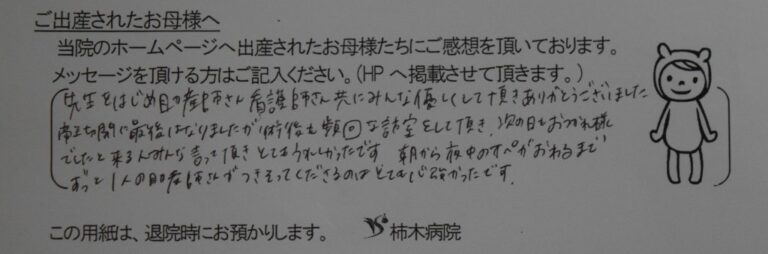 ご出産されたお母様へ
当院のホームページへ出産されたお母様たちにご感想を頂いております。
メッセージを頂ける方はご記入ください。(HPへ掲載させて頂きます。)
先生をはじめ助産師さん看護師さん共にみんな優しくして頂きありがとうございました
帝王切開に最後はなりましたが術後も頻回な訪室をして頂き、次の日もおつかれ様
でしたと来る人みんな言って頂きとてもうれしかったです 朝から夜中のオペがおわるまで
ずっと1人の助産師さんがつきそってくださるのはとても心強かったです.
この用紙は、退院時にお預かりします。 柿木病院